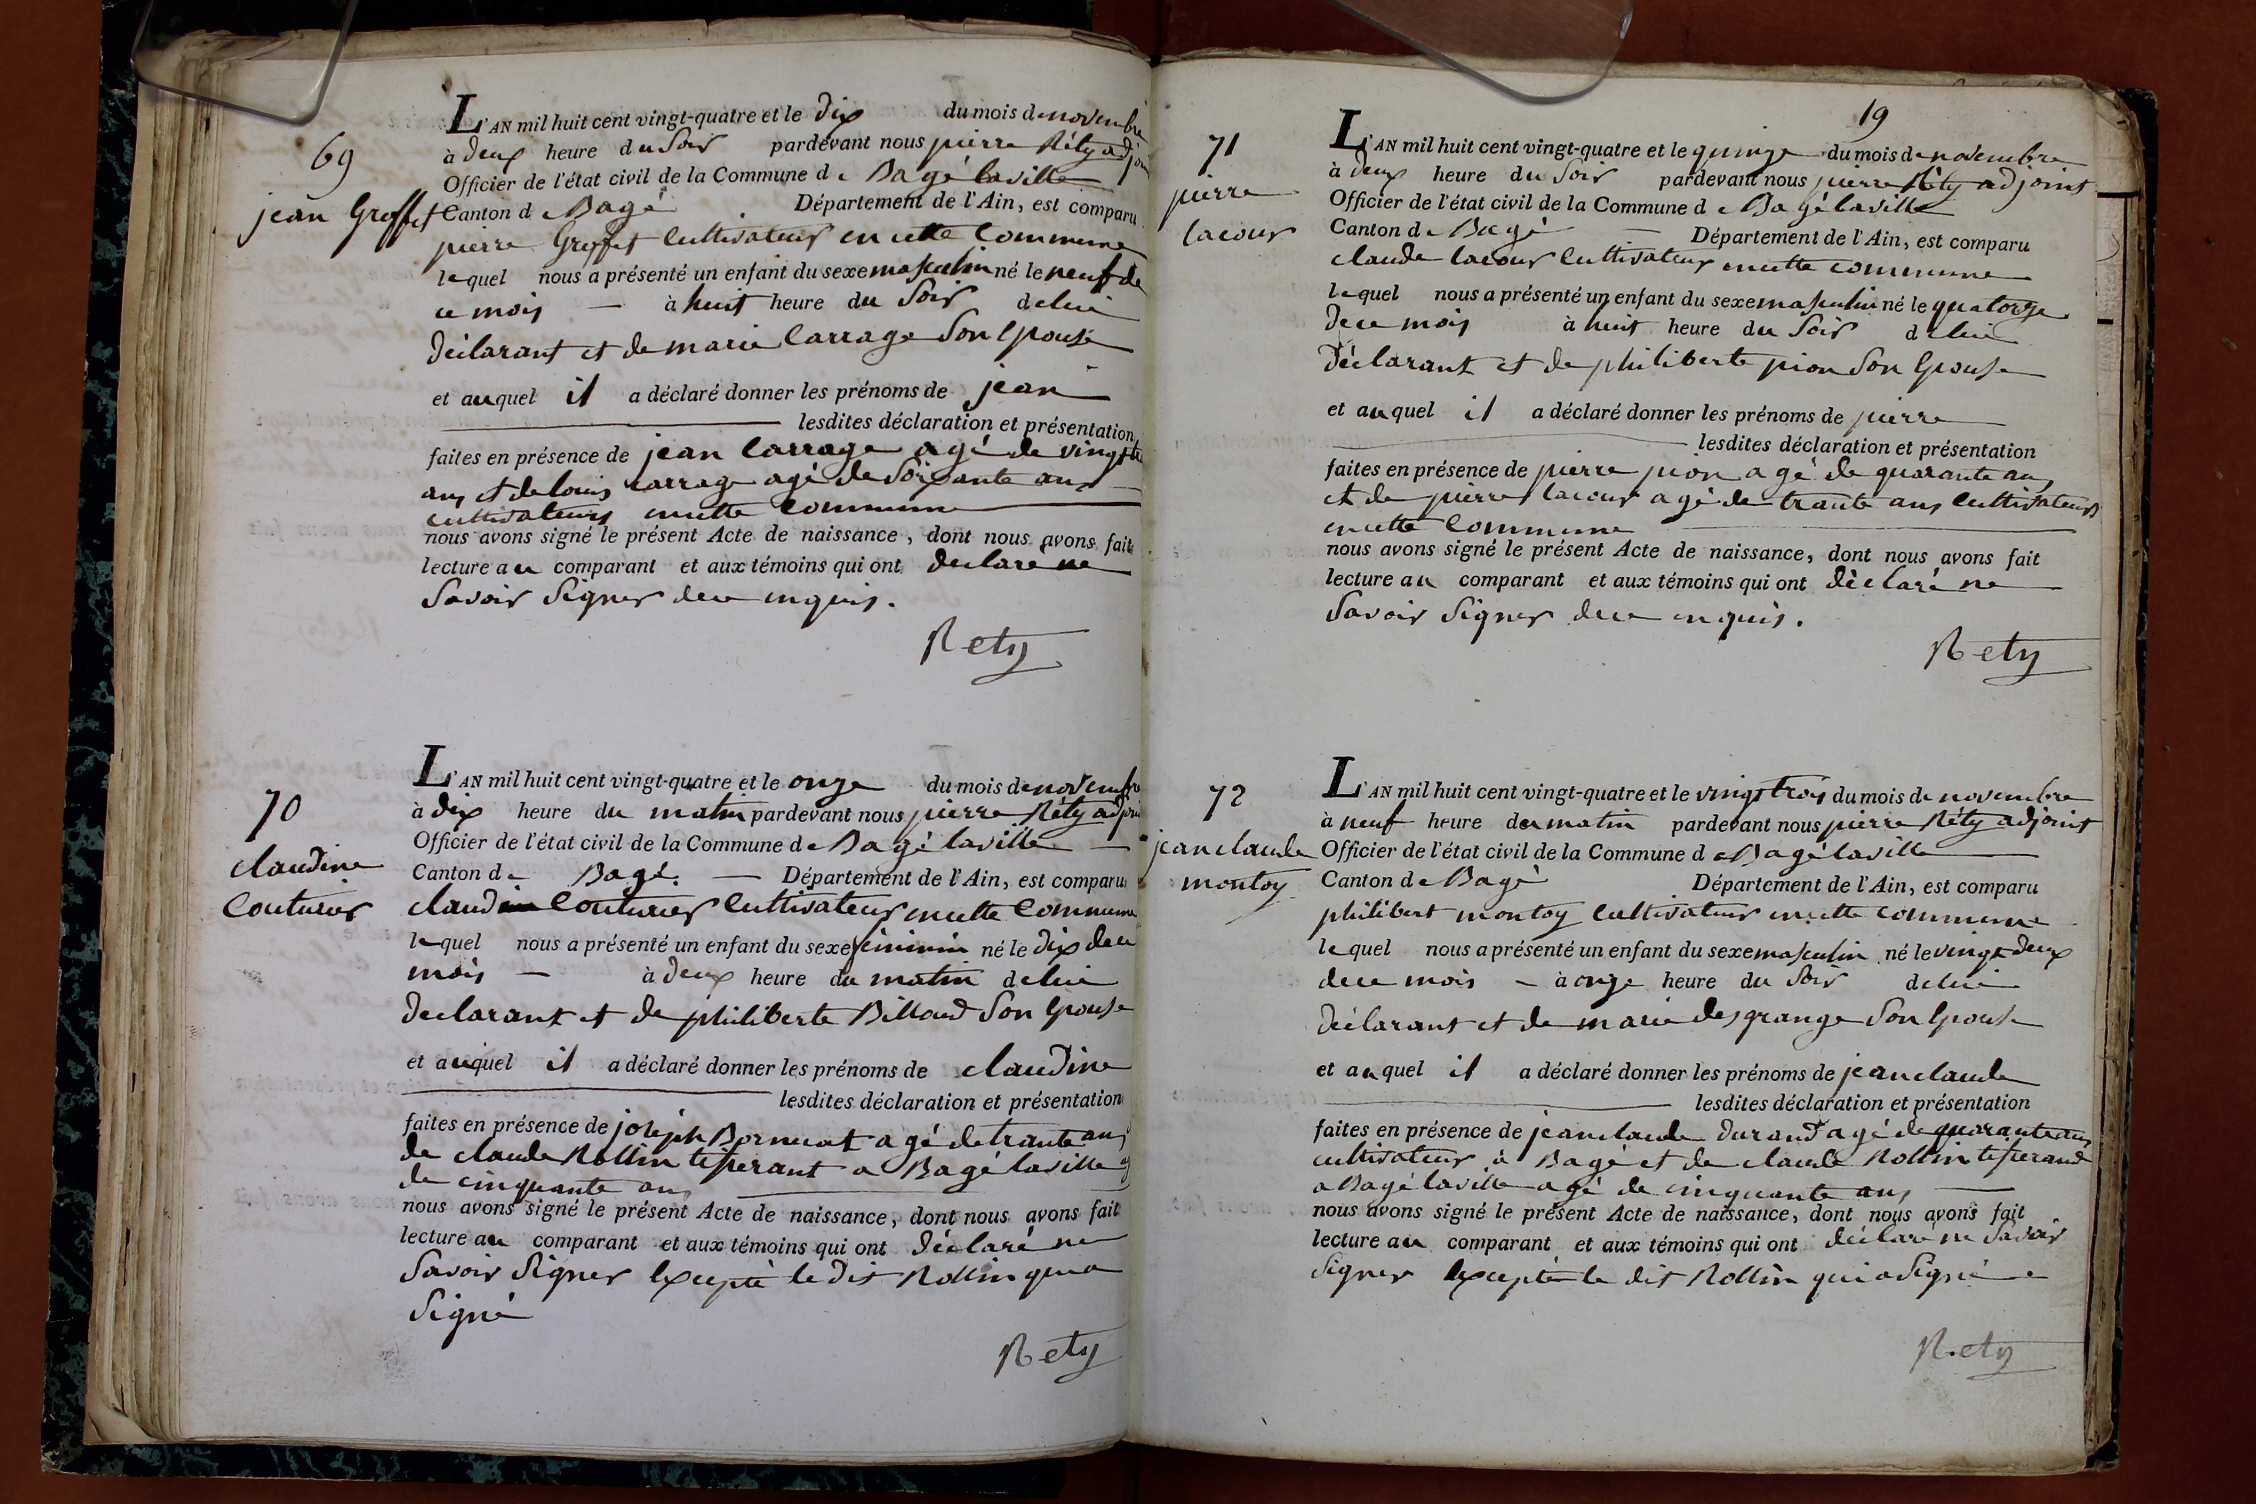 69
jean Greffet
L'AN mil huit cent vingt-quatre et le dix du mois de novembre
à deux heure du Soir pardevant nous pierre Réty adjoin
Officier de l'état civil de la Commune de Bagé laville
Canton de Bagé Département de l'Ain, est comparu
pierre Greffet Cultivateur en cette Commune
lequel nous a présenté un enfant du sexe masculin né le neuf de
ce mois — à huit heure du Soir de lui
déclarant et de marie Carrage Son Epouse
et auquel il a déclaré donner les prénoms de jean
lesdites déclaration et présentation
faites en présence de jean Carrage agé de vingt
ans et de louis Carrage agé de Soixante ans
cultivateurs encette Commune
nous avons signé le présent Acte de naissance, dont nous avons fait
lecture au comparant et aux témoins qui ont declaré ne
Savoir Signer dece enquis.
Rety
70
claudine
Couturier
L'AN mil huit cent vingt-quatre et le onze du mois de novembre
à dix heure du matin pardevant nous pierre Réty adjoin
Officier de l'état civil de la Commune de Bagé laville
Canton de Bagé. — Département de l'Ain, est comparu
claud Couturier Cultivateur encette Commune
lequel nous a présenté un enfant du sexe feminin né le dix dece
mois — à deux heure du matin de lui
declarant et de philiberte Billoud Son Epouse
et auquel il a déclaré donner les prénoms de claudine
lesdites déclaration et présentation
faites en présence de joseph Bornuat agé de trante ans
de claude Rollin tisserant a Bagé laville
de cinquante ans
nous avons signé le présent Acte de naissance, dont nous avons fait
lecture au comparant et aux témoins qui ont déclaré ne
Savoir Signer Excepté le dit Rollin qui a
Signé
Rety
19
71
pierre
lacour
L'AN mil huit cent vingt-quatre et le quinze du mois de novembre
à deux heure du Soir pardevant nous pierre Réty adjoint
Officier de l'état civil de la Commune de Bagé laville
Canton de Bagé — Département de l'Ain, est comparu
claude lacour Cultivateur encette commune
lequel nous a présenté un enfant du sexe masculin né le quatorze
dece mois à huit heure du Soir de lui
déclarant et de philiberte pion Son Epouse
et auquel il a déclaré donner les prénoms de pierre
lesdites déclaration et présentation
faites en présence de pierre pion agé de quarante ans
et de pierre lacour agé de trante ans Cultivateurs
encette Commune
nous avons signé le présent Acte de naissance, dont nous avons fait
lecture au comparant et aux témoins qui ont déclaré ne
Savoir Signer dece enquis.
Rety
72
jean claude
montoy
L'AN mil huit cent vingt-quatre et le vingt trois du mois de novembre
à neuf heure du matin pardevant nous pierre Réty adjoint
Officier de l'état civil de la Commune de Bagé laville
Canton de Bagé Département de l'Ain, est comparu
philibert montoy Cultivateur encette commune
lequel nous a présenté un enfant du sexe masculin né le vingt deux
dece mois — à onze heure du Soir de lui
déclarant et de marie desgrange Son Epouse
et auquel il a déclaré donner les prénoms de jean claude
lesdites déclaration et présentation
faites en présence de jean claude durand agé de quarante ans
cultivateur à Bagé et de claude Rollin tisserand
a Bagé laville agé de cinquante ans
nous avons signé le présent Acte de naissance, dont nous avons fait
lecture au comparant et aux témoins qui ont déclaré ne Savoir
Signer Excepté le dit Rollin qui a Signé
Rety